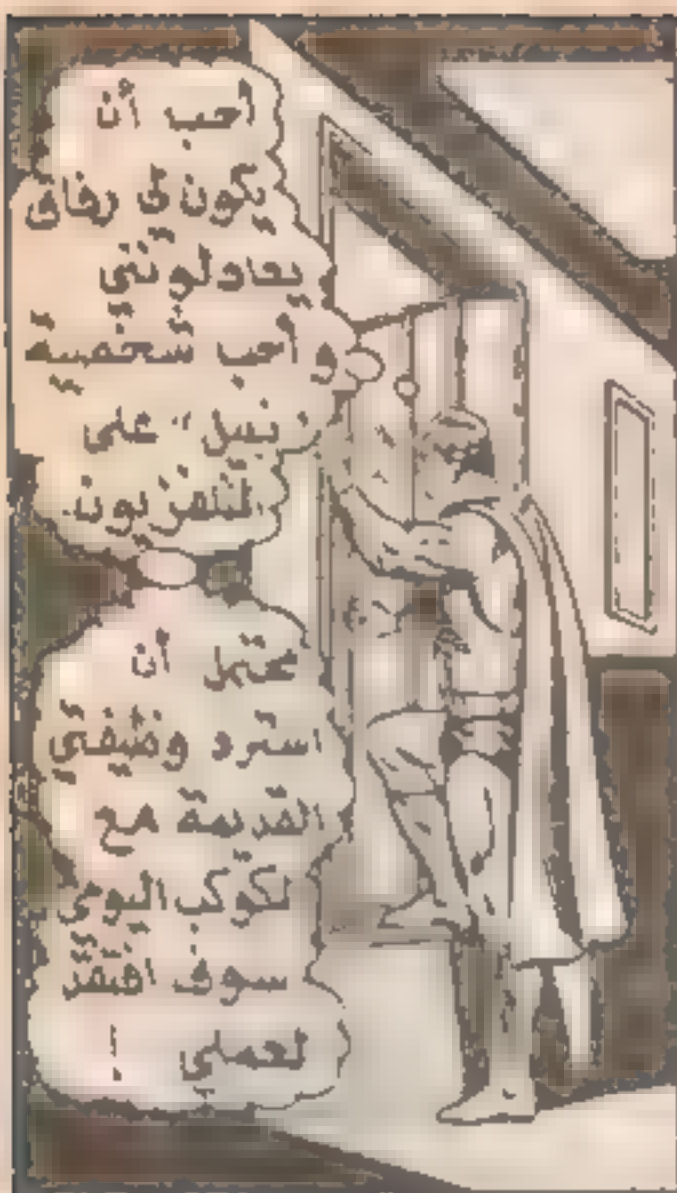 أحب أن
يكون لى رفاق
يعادلوننى
وأحب شخصية
نبيل" على
التلفزيون.
يحتمل أن
استرد وظيفتى
القديمة مع
لكوكب اليومى
سوف افتقر
لعملى !